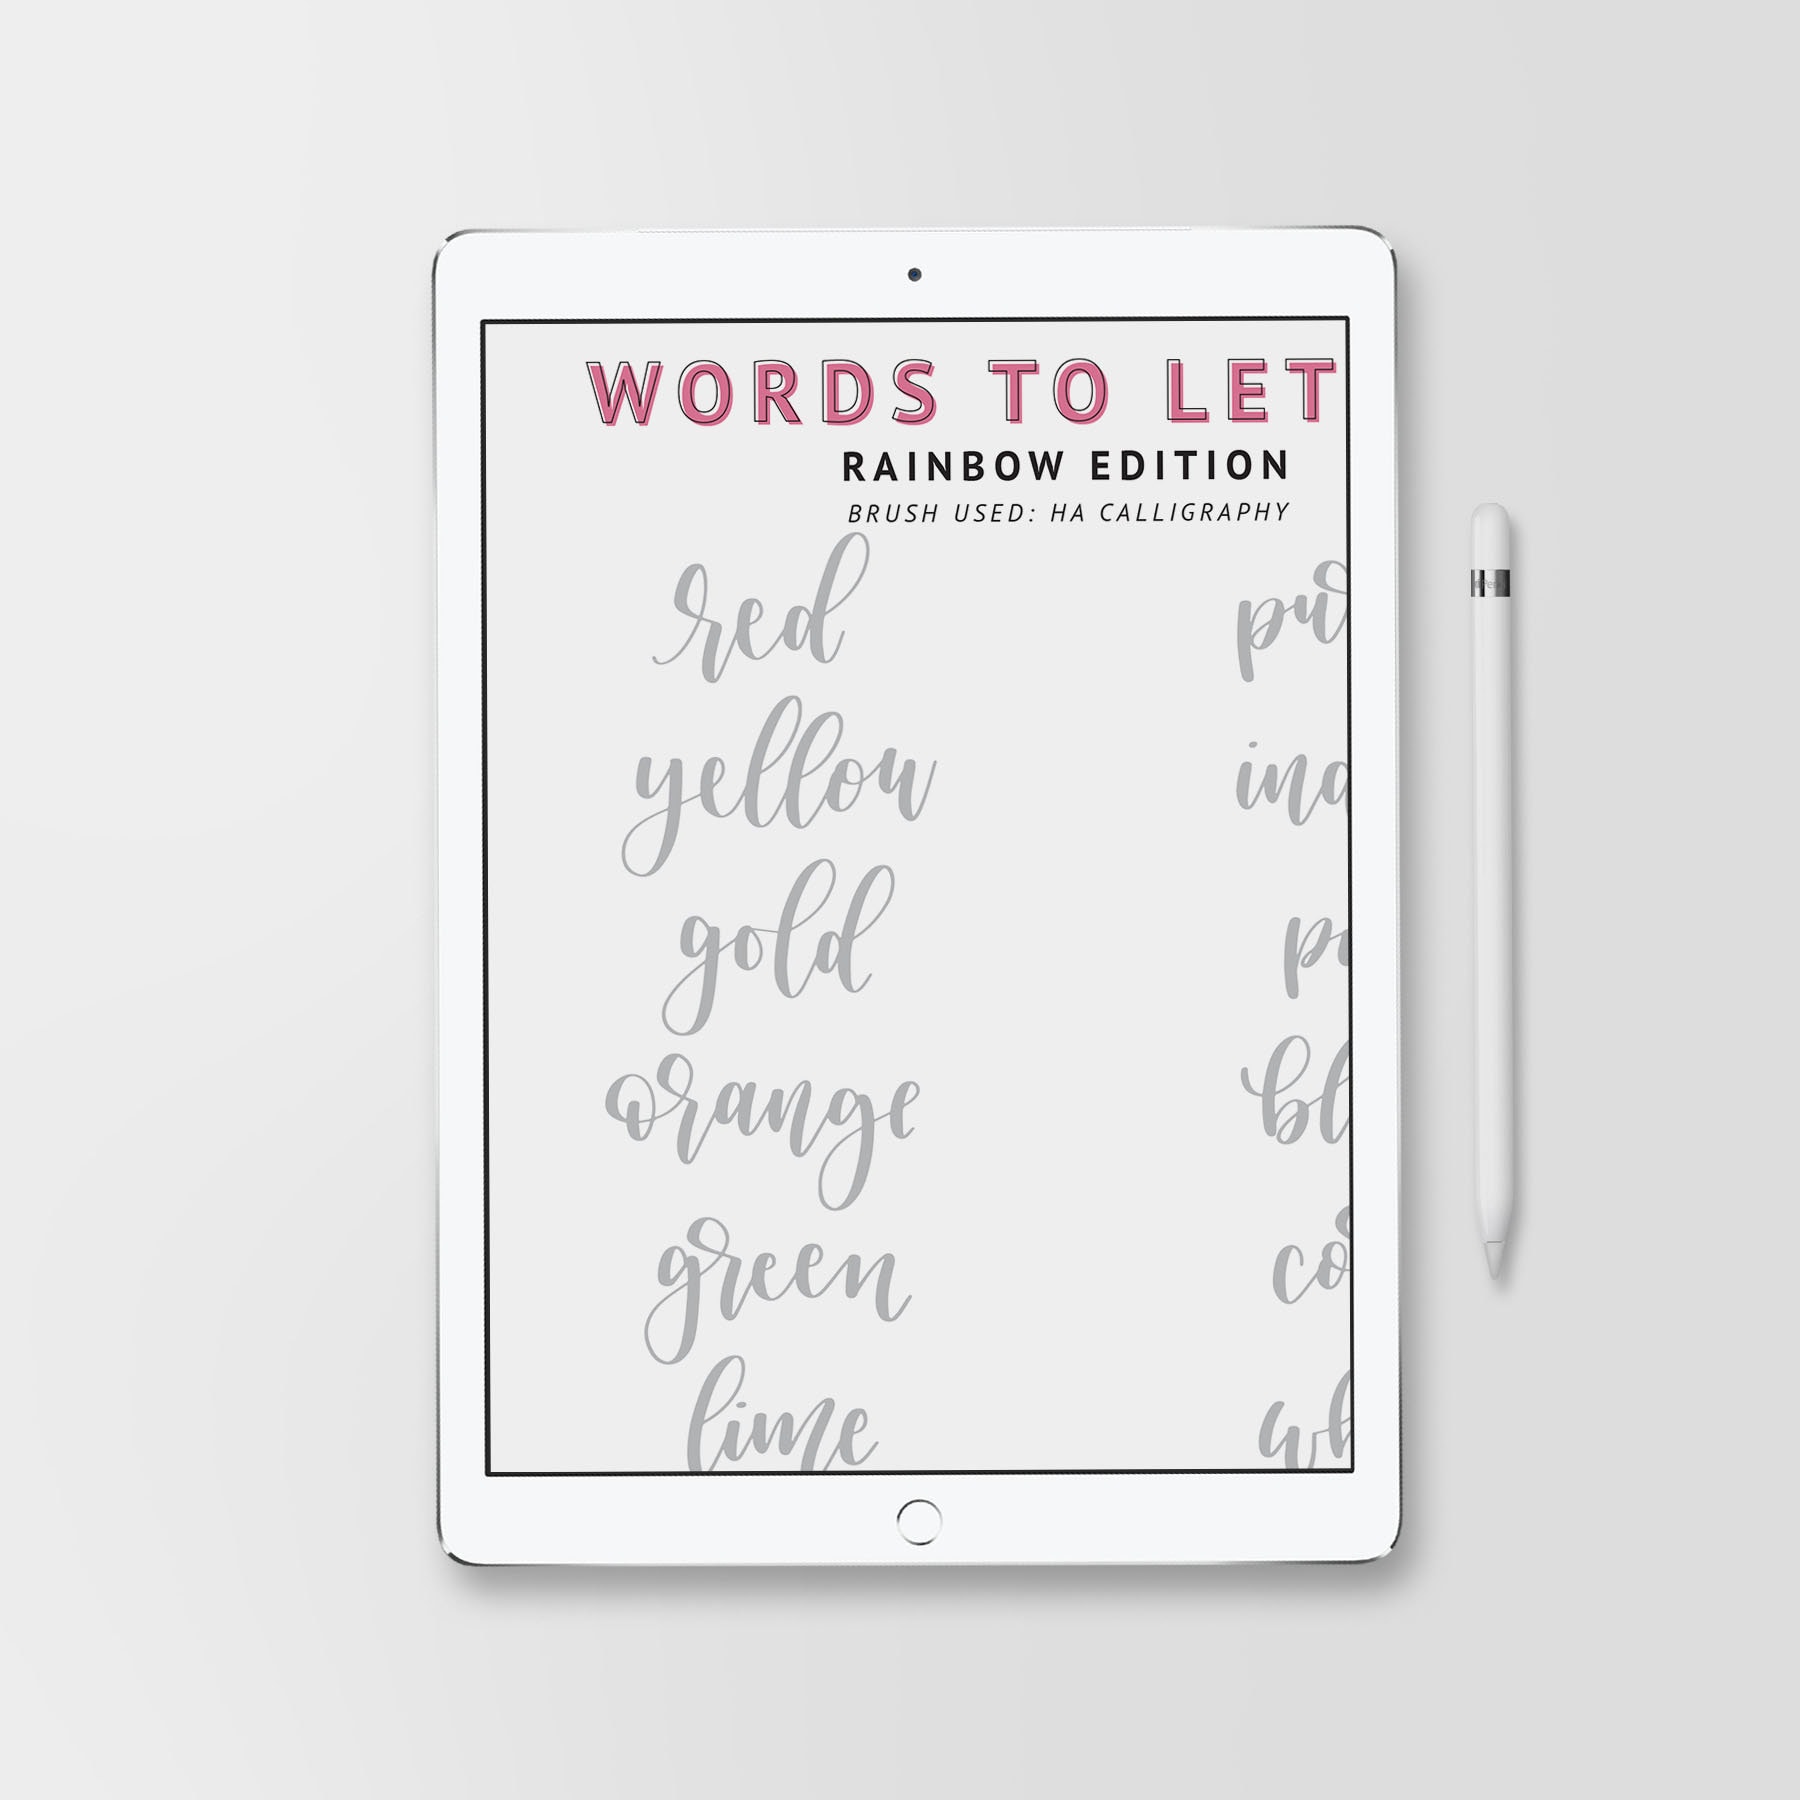 WORDS TO LET
RAINBOW EDITION
BRUSH USED: HA CALLIGRAPHY
red
yellow
gold
orange
green
lime